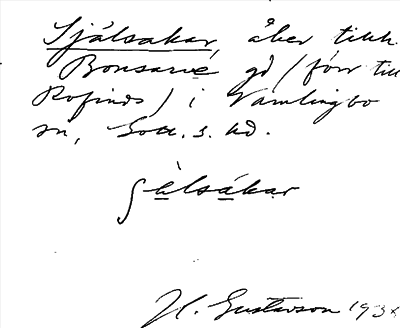 Själsakar, åker tillh.
Bonsarve gd (förr till
Rofinds) i Vamlingbo
sn, Gotl. s. hd.
ʃèlsákar
H. Gustavson 193